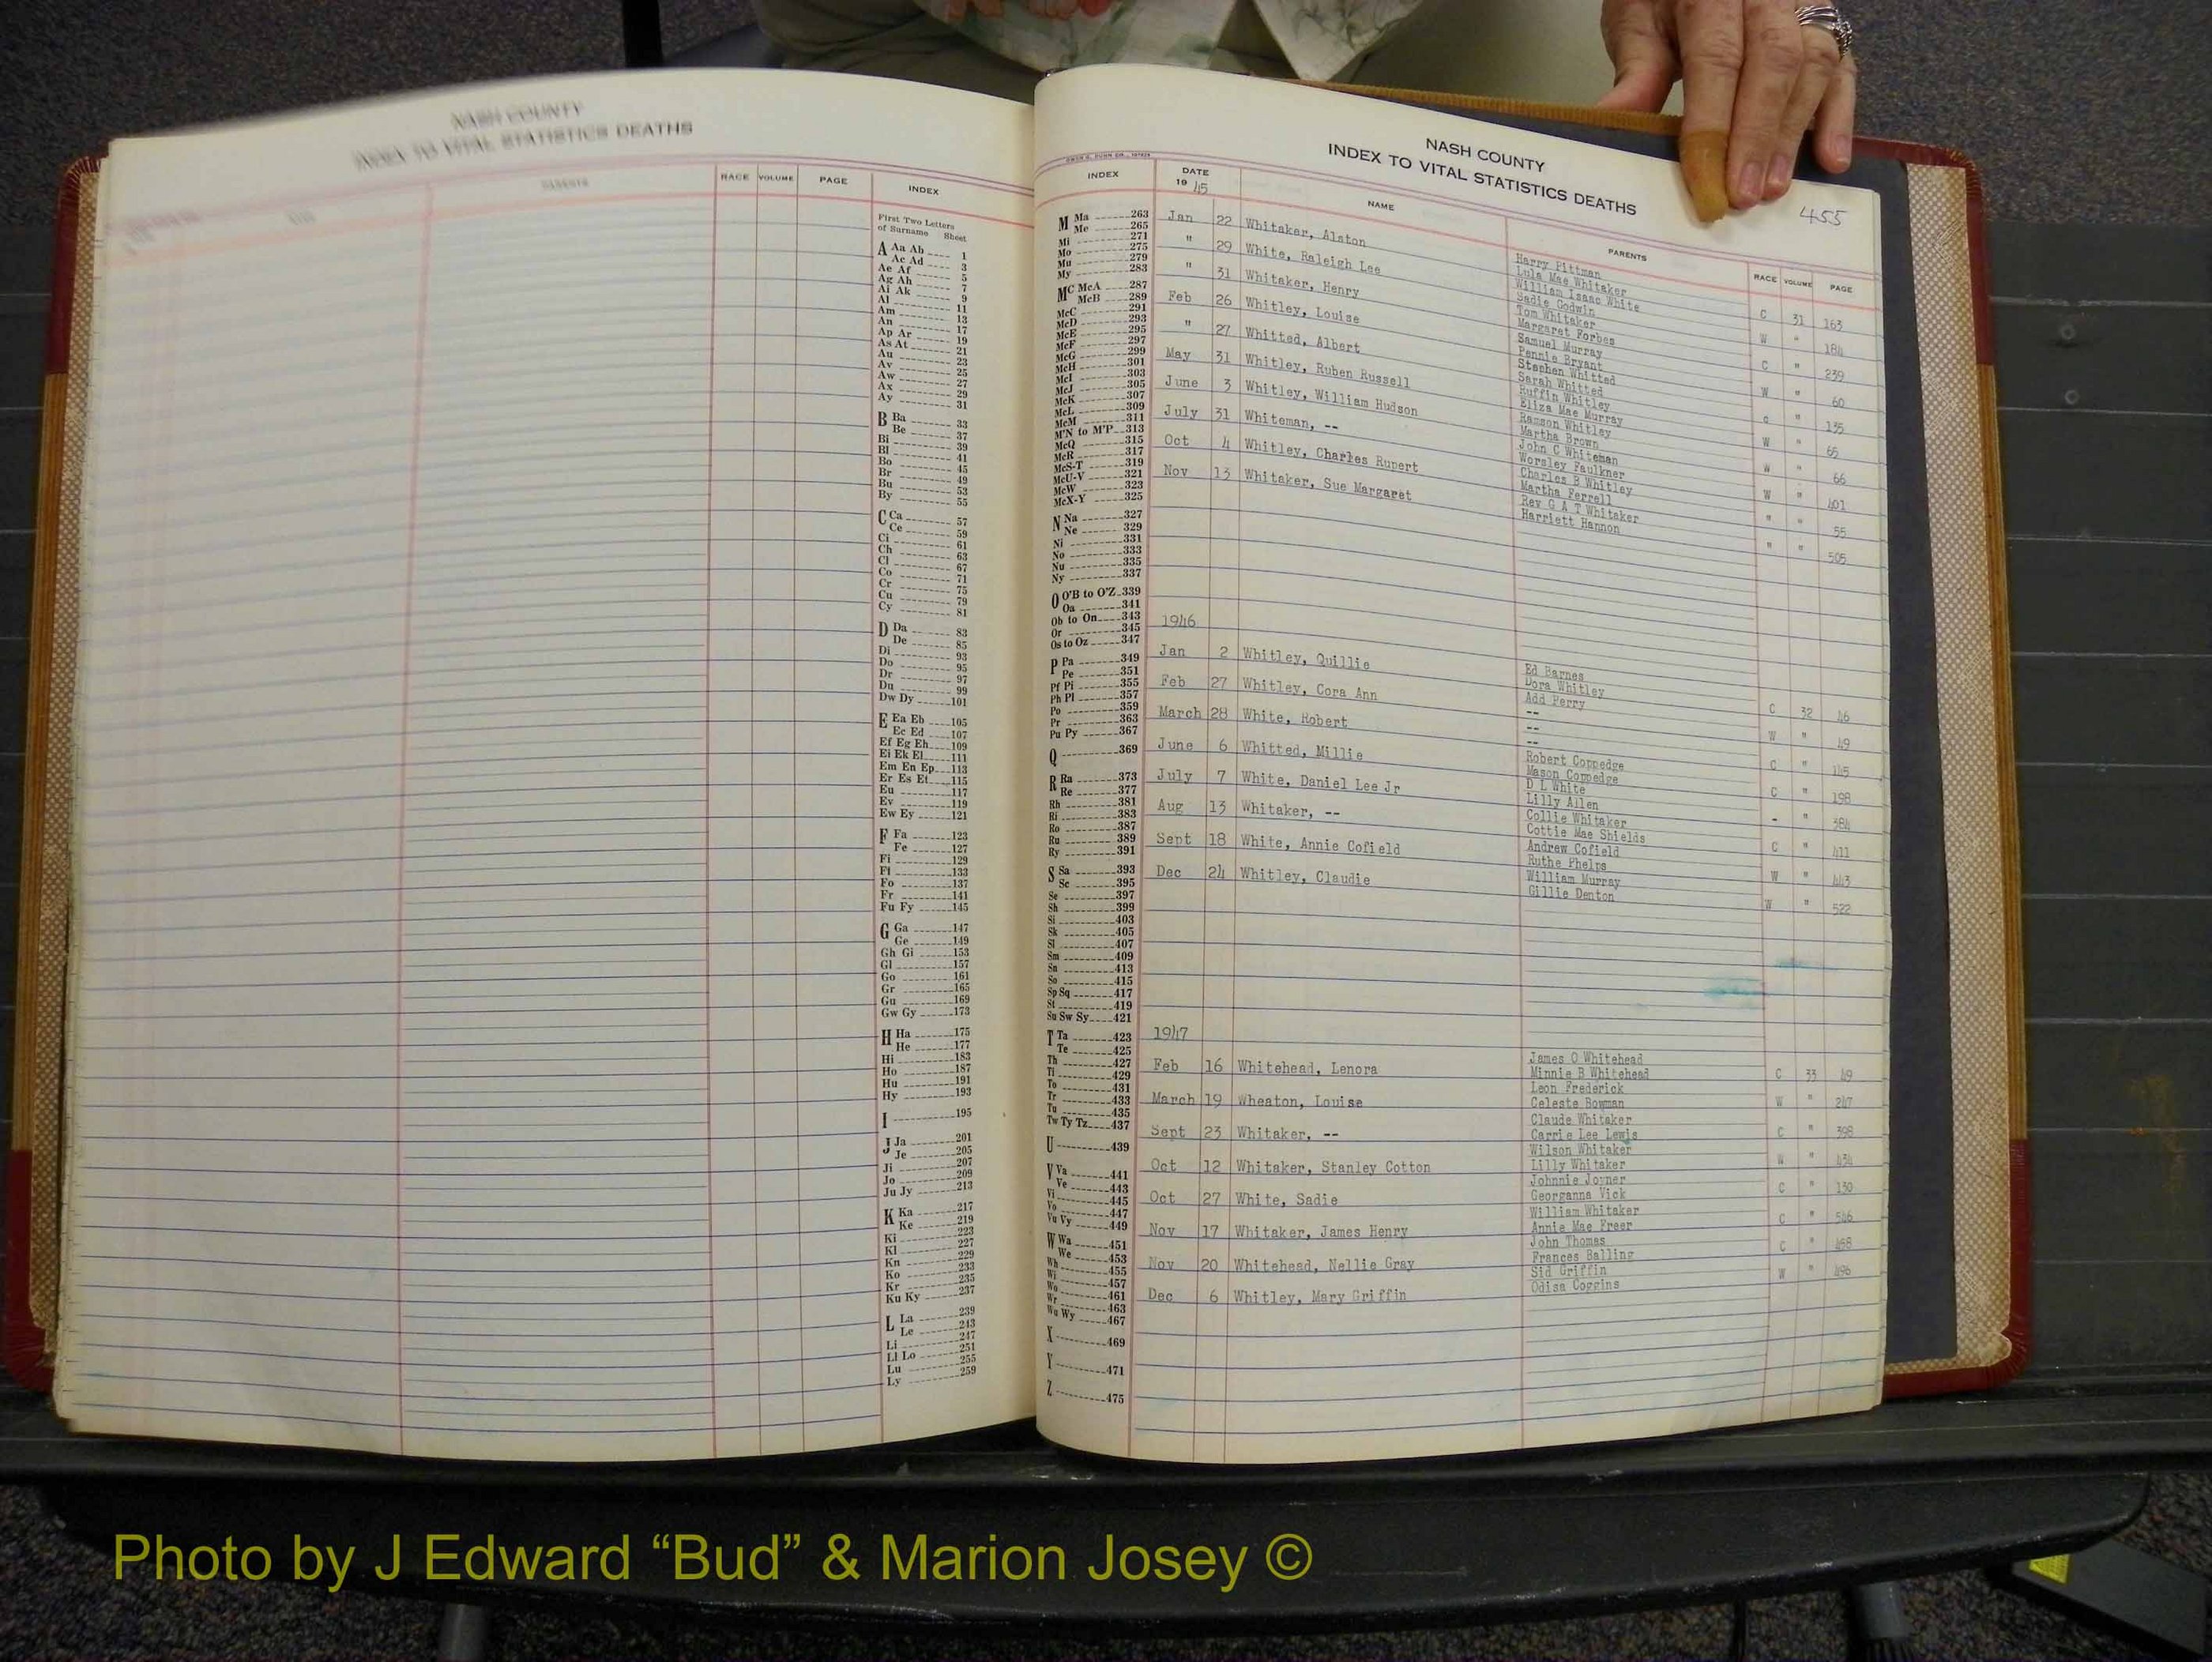 NASH COUNTY
INDEX TO VITAL STATISTICS DEATHS
PARENTS RACE VOLUME PAGE INDEX
First Two Letters
of Surname Sheet
A Aa Ab 1
Ac Ad 3
Ae Af 5
Ag Ah 7
Ai Ak 9
Al 11
Am 13
An 17
Ap Ar 19
As At 21
Au 23
Av 25
Aw 27
Ax 29
Ay 31
B Ba 33
Be 37
Bi 39
Bl 41
Bo 45
Br 49
Bu 53
By 55
C Ca 57
Ce 59
Ci 61
Ch 63
Cl 67
Co 71
Cr 75
Cu 79
Cy 81
D Da 83
De 85
Di 93
Do 95
Dr 97
Du 99
Dw Dy 101
E Ea Eb 105
Ec Ed 107
Ef Eg Eh 109
Ei Ek El 111
Em En Ep 113
Er Es Et 115
Eu 117
Ev 119
Ew Ey 121
F Fa 123
Fe 127
Fi 129
Fl 133
Fo 137
Fr 141
Fu Fy 145
G Ga 147
Ge 149
Gh Gi 153
Gl 157
Go 161
Gr 165
Gu 169
Gw Gy 173
H Ha 175
He 177
Hi 183
Ho 187
Hu 191
Hy 193
I 195
J Ja 201
Je 205
Ji 207
Jo 209
Ju Jy 213
K Ka 217
Ke 219
Ki 223
Kl 227
Kn 229
Ko 233
Kr 235
Ku Ky 237
L La 239
Le 243
Li 247
Ll Lo 251
Lu 255
Ly 259
NASH COUNTY
INDEX TO VITAL STATISTICS DEATHS
455
INDEX DATE NAME PARENTS RACE VOLUME PAGE
19 45
M Ma 263
Me 265
Mi 271
Mo 275
Mu 279
My 283
Mc McA 287
McB 289
McC 291
McD 293
McE 295
McF 297
McG 299
McH 301
McI 303
McJ 305
McK 307
McL 309
McM 311
M'N to M'P 313
McQ 315
McR 317
McS-T 319
McU-V 321
McW 323
McX-Y 325
N Na 327
Ne 329
Ni 331
No 333
Nu 335
Ny 337
O O'B to O'Z 339
Oa 341
Ob to On 343
Or 345
Os to Oz 347
P Pa 349
Pe 351
Pf Pi 355
Ph Pl 357
Po 359
Pr 363
Pu Py 367
Q 369
R Ra 373
Re 377
Rh 381
Ri 383
Ro 387
Ru 389
Ry 391
S Sa 393
Sc 395
Se 397
Sh 399
Si 403
Sk 405
Sl 407
Sm 409
Sn 413
So 415
Sp Sq 417
St 419
Su Sw Sy 421
T Ta 423
Te 425
Th 427
Ti 429
To 431
Tr 433
Tu 435
Tw Ty Tz 437
U 439
V Va 441
Ve 443
Vi 445
Vo 447
Vu Vy 449
W Wa 451
We 453
Wh 455
Wi 457
Wo 461
Wr 463
Wu Wy 467
X 469
Y 471
Z 475
Jan 22 Whitaker, Alston Harry Pittman
Lula Mae Whitaker C 31 163
" 29 White, Raleigh Lee William Isaac White
Sadie Godwin W " 184
" 31 Whitaker, Henry Tom Whitaker
Margaret Forbes C " 239
Feb 26 Whitley, Louise Samuel Murray
Pennie Bryant W " 60
" 27 Whitted, Albert Stephen Whitted
Sarah Whitted C " 135
May 31 Whitley, Ruben Russell Ruffin Whitley
Eliza Mae Murray W " 65
June 3 Whitley, William Hudson Ransom Whitley
Martha Brown W " 66
July 31 Whiteman, -- John C Whiteman
Worsley Faulkner W " 401
Oct 4 Whitley, Charles Rupert Charles B Whitley
Martha Ferrell " " 55
Nov 13 Whitaker, Sue Margaret Rev G A T Whitaker
Harriett Hannon " " 505
1946
Jan 2 Whitley, Quillie Ed Barnes
Dora Whitley C 32 46
Feb 27 Whitley, Cora Ann Add Perry
-- W " 49
March 28 White, Robert --
-- C " 145
June 6 Whitted, Millie Robert Coppedge
Mason Coppedge C " 198
July 7 White, Daniel Lee Jr D L White
Lilly Allen - " 384
Aug 13 Whitaker, -- Collie Whitaker
Cottie Mae Shields C " 411
Sept 18 White, Annie Cofield Andrew Cofield
Ruthe Phelps W " 443
Dec 24 Whitley, Claudie William Murray
Gillie Denton W " 522
1947
Feb 16 Whitehead, Lenora James O Whitehead
Minnie B Whitehead C 33 49
March 19 Wheaton, Louise Leon Frederick
Celeste Bowman W " 247
Sept 23 Whitaker, -- Claude Whitaker
Carrie Lee Lewis C " 398
Oct 12 Whitaker, Stanley Cotton Wilson Whitaker
Lilly Whitaker W " 454
Oct 27 White, Sadie Johnnie Joyner
Georganna Vick C " 130
Nov 17 Whitaker, James Henry William Whitaker
Annie Mae Freer C " 546
Nov 20 Whitehead, Nellie Gray John Thomas
Frances Balling C " 468
Dec 6 Whitley, Mary Griffin Sid Griffin
Odisa Coggins W " 496
Photo by J Edward “Bud” & Marion Josey ©